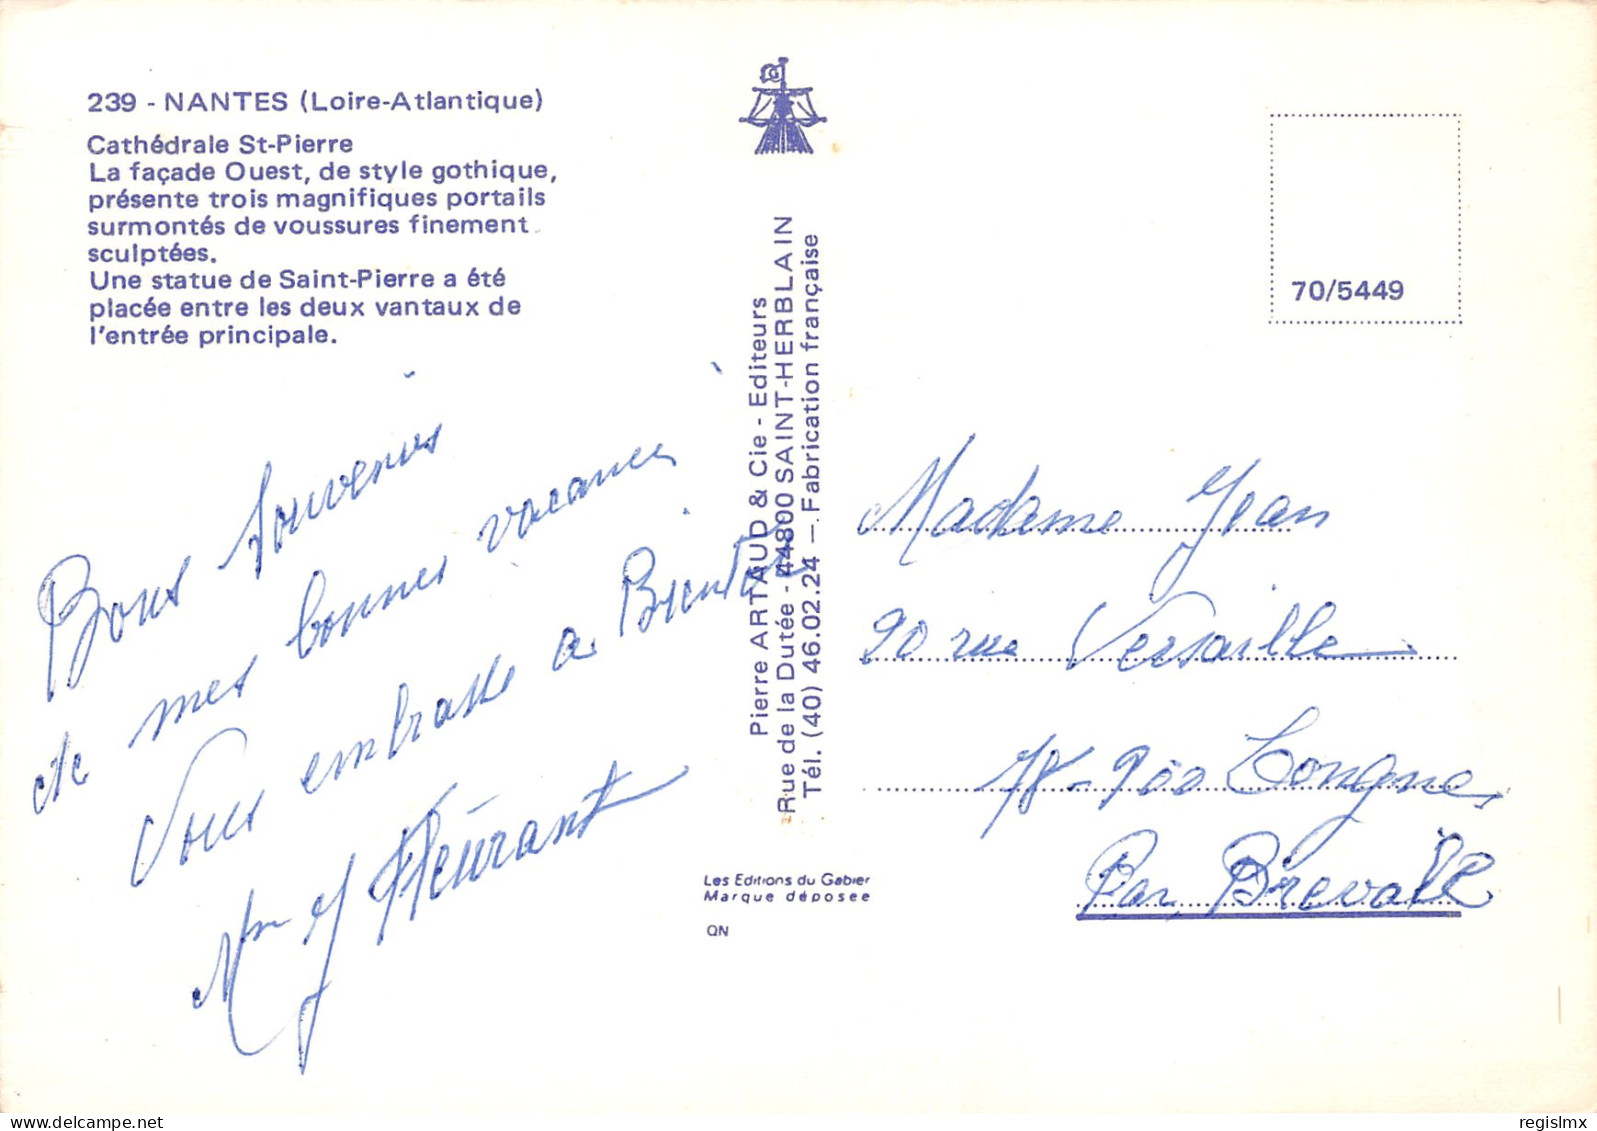 239 - NANTES (Loire-Atlantique)
Cathédrale St-Pierre
La façade Ouest, de style gothique,
présente trois magnifiques portails
surmontés de voussures finement
sculptées.
Une statue de Saint-Pierre a été
placée entre les deux vantaux de
l'entrée principale.
Bons Souvenirs
de mes bonnes vacances
Vous embrasse a Bientot
Pierre ARTAUD & Cie - Editeurs
Rue de la Dutée - 44800 SAINT-HERBLAIN
Tél. (40) 46.02.24 - Fabrication française
Les Editions du Gabier
Marque déposée
QN
70/5449
Madame Jean
90 rue Versaille
78-900 Longnes
Par Brevall
regislmx